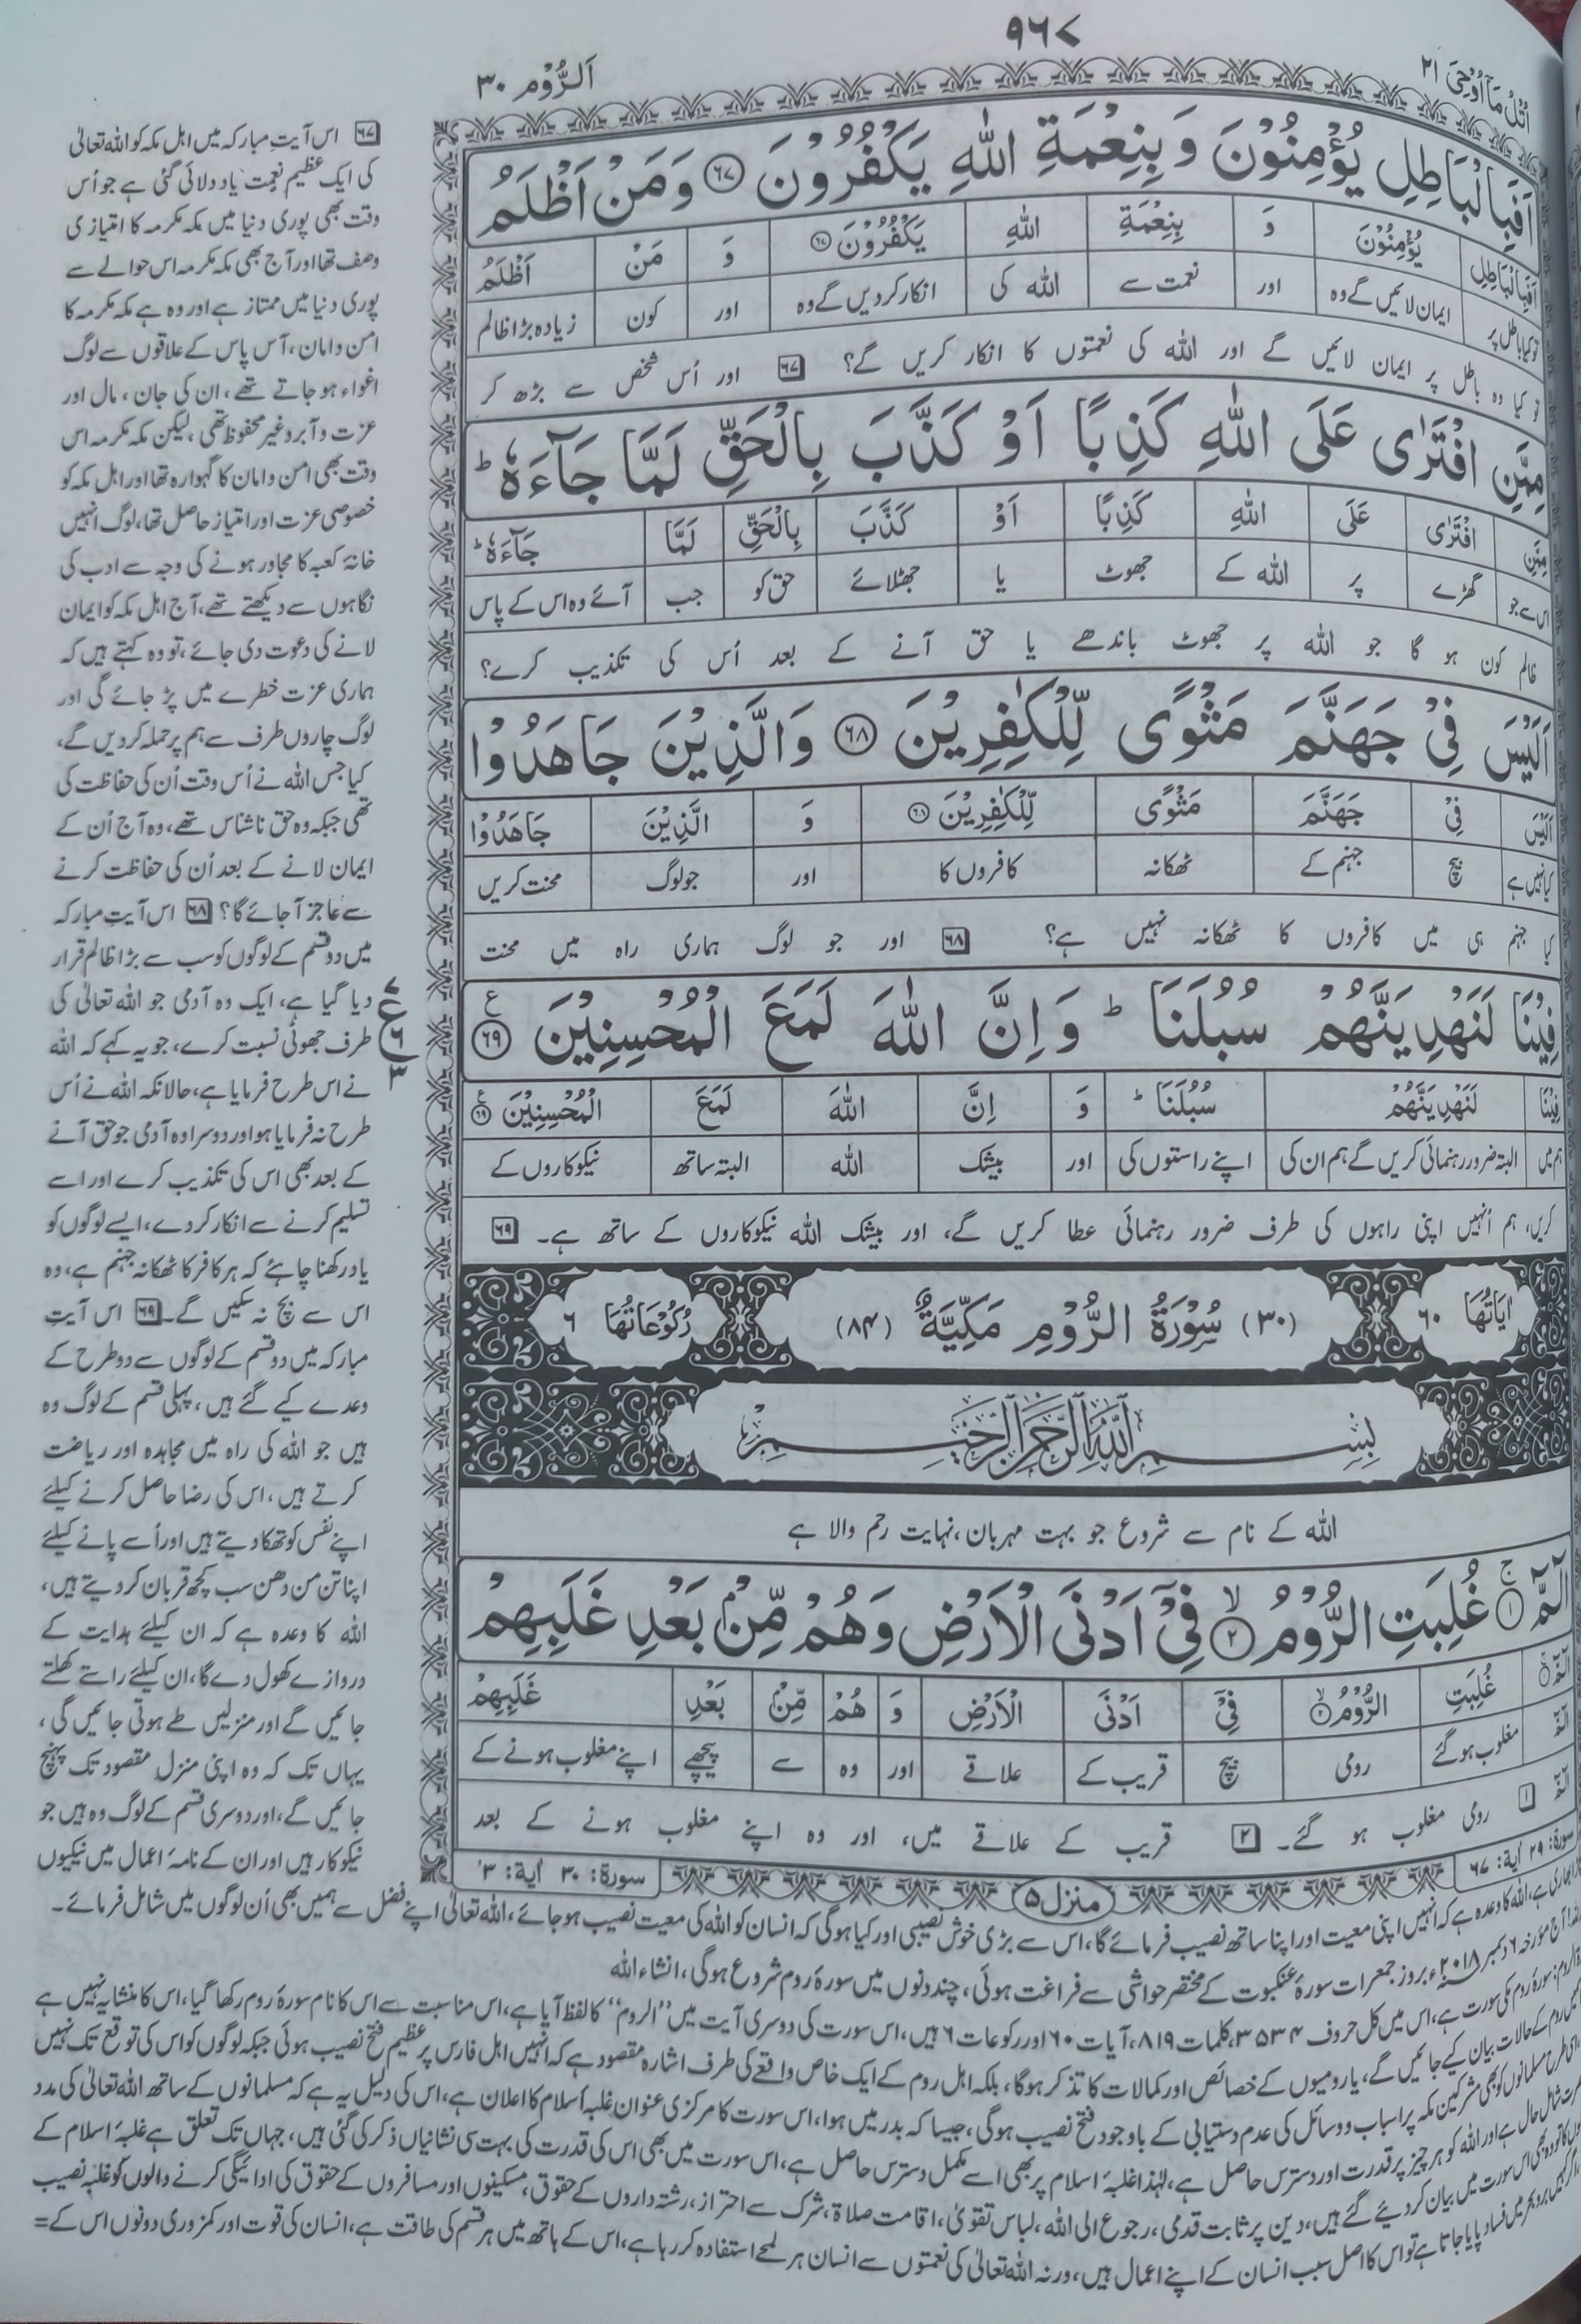 ۹۶۷
اُتْلُ مَآ اُوْحِیَ ۲۱
اَلرُّوْم ۳۰
اَفَبِالْبَاطِلِ یُؤْمِنُوْنَ وَبِنِعْمَةِ اللّٰهِ یَکْفُرُوْنَ ۝۶۷ وَمَنْ اَظْلَمُ
اَفَبِالْبَاطِلِ یُؤْمِنُوْنَ وَ بِنِعْمَةِ اللّٰهِ یَکْفُرُوْنَ۶۷ وَ مَنْ اَظْلَمُ
تو کیا باطل پر ایمان لائیں گے وہ اور نعمت سے اللہ کی انکار کر دیں گے وہ اور کون زیادہ بڑا ظالم
تو کیا وہ باطل پر ایمان لائیں گے اور اللہ کی نعمتوں کا انکار کریں گے؟ ۶۷ اور اُس شخص سے بڑھ کر
مِمَّنِ افْتَرٰی عَلَی اللّٰهِ کَذِبًا اَوْ کَذَّبَ بِالْحَقِّ لَمَّا جَآءَهٗ ؕ
مِمَّنِ افْتَرٰی عَلَی اللّٰهِ کَذِبًا اَوْ کَذَّبَ بِالْحَقِّ لَمَّا جَآءَهٗ ؕ
اس سے جو گھڑے پر اللہ کے جھوٹ یا جھٹلائے حق کو جب آئے وہ اس کے پاس
ظالم کون ہو گا جو اللہ پر جھوٹ باندھے یا حق آنے کے بعد اُس کی تکذیب کرے؟
اَلَیْسَ فِیْ جَهَنَّمَ مَثْوًی لِّلْکٰفِرِیْنَ ۝۶۸ وَالَّذِیْنَ جَاهَدُوْا
اَلَیْسَ فِیْ جَهَنَّمَ مَثْوًی لِّلْکٰفِرِیْنَ۶۸ وَ الَّذِیْنَ جَاهَدُوْا
کیا نہیں ہے بیچ جہنم کے ٹھکانہ کافروں کا اور جو لوگ محنت کریں
کیا جہنم ہی میں کافروں کا ٹھکانہ نہیں ہے؟ ۶۸ اور جو لوگ ہماری راہ میں محنت
فِیْنَا لَنَهْدِیَنَّهُمْ سُبُلَنَا ؕ وَاِنَّ اللّٰهَ لَمَعَ الْمُحْسِنِیْنَ ۝۶۹ ع
فِیْنَا لَنَهْدِیَنَّهُمْ سُبُلَنَا ؕ وَ اِنَّ اللّٰهَ لَمَعَ الْمُحْسِنِیْنَ۶۹ ع
ہم میں البتہ ضرور رہنمائی کریں گے ہم ان کی اپنے راستوں کی اور بیشک اللہ البتہ ساتھ نیکوکاروں کے
کریں، ہم اُنہیں اپنی راہوں کی طرف ضرور رہنمائی عطا کریں گے، اور بیشک اللہ نیکوکاروں کے ساتھ ہے۔ ۶۹
اٰیَاتُهَا ۶۰ (۳۰) سُوْرَةُ الرُّوْمِ مَکِّیَّةٌ (۸۴) رُکُوْعَاتُهَا ۶
بِسْمِ اللّٰهِ الرَّحْمٰنِ الرَّحِیْمِ
اللہ کے نام سے شروع جو بہت مہربان، نہایت رحم والا ہے
الٓمّٓ ۝۱ ج غُلِبَتِ الرُّوْمُ ۝۲ لا فِیْٓ اَدْنَی الْاَرْضِ وَهُمْ مِّنْۢ بَعْدِ غَلَبِهِمْ
الٓمّٓ۱ غُلِبَتِ الرُّوْمُ۲ فِیْٓ اَدْنَی الْاَرْضِ وَ هُمْ مِّنْۢ بَعْدِ غَلَبِهِمْ
الٓمّٓ مغلوب ہو گئے رومی بیچ قریب کے علاقے اور وہ سے پیچھے اپنے مغلوب ہونے کے
الٓمّٓ ۱ رومی مغلوب ہو گئے۔ ۲ قریب کے علاقے میں، اور وہ اپنے مغلوب ہونے کے بعد
سورة: ۲۹ آیة: ۶۷
منزل ۵
سورة: ۳۰ آیة: ۳
۶۷ اس آیتِ مبارکہ میں اہل مکہ کو اللہ تعالیٰ
کی ایک عظیم نعمت یاد دلائی گئی ہے جو اُس
وقت بھی پوری دنیا میں مکہ مکرمہ کا امتیازی
وصف تھا اور آج بھی مکہ مکرمہ اس حوالے سے
پوری دنیا میں ممتاز ہے اور وہ ہے مکہ مکرمہ کا
امن و امان، آس پاس کے علاقوں سے لوگ
اغواء ہو جاتے تھے، ان کی جان، مال اور
عزت و آبرو غیر محفوظ تھی، لیکن مکہ مکرمہ اس
وقت بھی امن و امان کا گہوارہ تھا اور اہل مکہ کو
خصوصی عزت اور امتیاز حاصل تھا، لوگ انہیں
خانۂ کعبہ کا مجاور ہونے کی وجہ سے ادب کی
نگاہوں سے دیکھتے تھے، آج اہل مکہ کو ایمان
لانے کی دعوت دی جائے، تو وہ کہتے ہیں کہ
ہماری عزت خطرے میں پڑ جائے گی اور
لوگ چاروں طرف سے ہم پر حملہ کر دیں گے،
کیا جس اللہ نے اُس وقت اُن کی حفاظت کی
تھی جبکہ وہ حق نا شناس تھے، وہ آج اُن کے
ایمان لانے کے بعد اُن کی حفاظت کرنے
سے عاجز آ جائے گا؟ ۶۸ اس آیتِ مبارکہ
میں دو قسم کے لوگوں کو سب سے بڑا ظالم قرار
دیا گیا ہے، ایک وہ آدمی جو اللہ تعالیٰ کی
طرف جھوٹی نسبت کرے، جو یہ کہے کہ اللہ
نے اس طرح فرمایا ہے، حالانکہ اللہ نے اُس
طرح نہ فرمایا ہو اور دوسرا وہ آدمی جو حق آنے
کے بعد بھی اس کی تکذیب کرے اور اسے
تسلیم کرنے سے انکار کر دے، ایسے لوگوں کو
یاد رکھنا چاہئے کہ ہر کافر کا ٹھکانہ جہنم ہے، وہ
اس سے بچ نہ سکیں گے۔ ۶۹ اس آیتِ
مبارکہ میں دو قسم کے لوگوں سے دو طرح کے
وعدے کیے گئے ہیں، پہلی قسم کے لوگ وہ
ہیں جو اللہ کی راہ میں مجاہدہ اور ریاضت
کرتے ہیں، اس کی رضا حاصل کرنے کیلئے
اپنے نفس کو تھکا دیتے ہیں اور اُسے پانے کیلئے
اپنا تن من دھن سب کچھ قربان کر دیتے ہیں،
اللہ کا وعدہ ہے کہ ان کیلئے ہدایت کے
دروازے کھول دے گا، ان کیلئے راستے کھلتے
جائیں گے اور منزلیں طے ہوتی جائیں گی،
یہاں تک کہ وہ اپنی منزل مقصود تک پہنچ
جائیں گے، اور دوسری قسم کے لوگ وہ ہیں جو
نیکوکار ہیں اور ان کے نامۂ اعمال میں نیکیوں
ع
۷
۶
۳
اللہ کا وعدہ ہے کہ انہیں اپنی معیت اور اپنا ساتھ نصیب فرمائے گا، اس سے بڑی خوش نصیبی اور کیا ہوگی کہ انسان کو اللہ کی معیت نصیب ہو جائے، اللہ تعالیٰ اپنے فضل سے ہمیں بھی اُن لوگوں میں شامل فرمائے۔
آج مؤرخہ ۶ دسمبر ۲۰۱۸ء بروز جمعرات سورۂ عنکبوت کے مختصر حواشی سے فراغت ہوئی، چند دنوں میں سورۂ روم شروع ہوگی، انشاء اللہ
سورۂ روم مکی سورت ہے، اس میں کل حروف ۳۵۳۴، کلمات ۸۱۹، آیات ۶۰ اور رکوعات ۶ ہیں، اس سورت کی دوسری آیت میں "الروم" کا لفظ آیا ہے، اس مناسبت سے اس کا نام سورۂ روم رکھا گیا، اس کا منشا یہ نہیں ہے
روم کے حالات بیان کیے جائیں گے، یا رومیوں کے خصائص اور کمالات کا تذکرہ ہوگا، بلکہ اہل روم کے ایک خاص واقعے کی طرف اشارہ مقصود ہے کہ انہیں اہل فارس پر عظیم فتح نصیب ہوئی جبکہ لوگوں کو اس کی توقع تک نہیں
اسی طرح مسلمانوں کو بھی مشرکین مکہ پر اسباب و وسائل کی عدم دستیابی کے باوجود فتح نصیب ہوگی، جیسا کہ بدر میں ہوا، اس سورت کا مرکزی عنوان غلبۂ اسلام کا اعلان ہے، اس کی دلیل یہ ہے کہ مسلمانوں کے ساتھ اللہ تعالیٰ کی مدد
شامل حال ہے اور اللہ کو ہر چیز پر قدرت اور دسترس حاصل ہے، لہٰذا غلبۂ اسلام پر بھی اسے مکمل دسترس حاصل ہے، اس سورت میں بھی اس کی قدرت کی بہت سی نشانیاں ذکر کی گئی ہیں، جہاں تک تعلق ہے غلبۂ اسلام کے
اس سورت میں بیان کر دیئے گئے ہیں، دین پر ثابت قدمی، رجوع الی اللہ، لباس تقویٰ، اقامت صلاۃ، شرک سے احتراز، رشتہ داروں کے حقوق، مسکینوں اور مسافروں کے حقوق کی ادائیگی کرنے والوں کو غلبہ نصیب
بر و بحر میں فساد پایا جاتا ہے تو اس کا اصل سبب انسان کے اپنے اعمال ہیں، ورنہ اللہ تعالیٰ کی نعمتوں سے انسان ہر لمحے استفادہ کر رہا ہے، اس کے ہاتھ میں ہر قسم کی طاقت ہے، انسان کی قوت اور کمزوری دونوں اس کے =